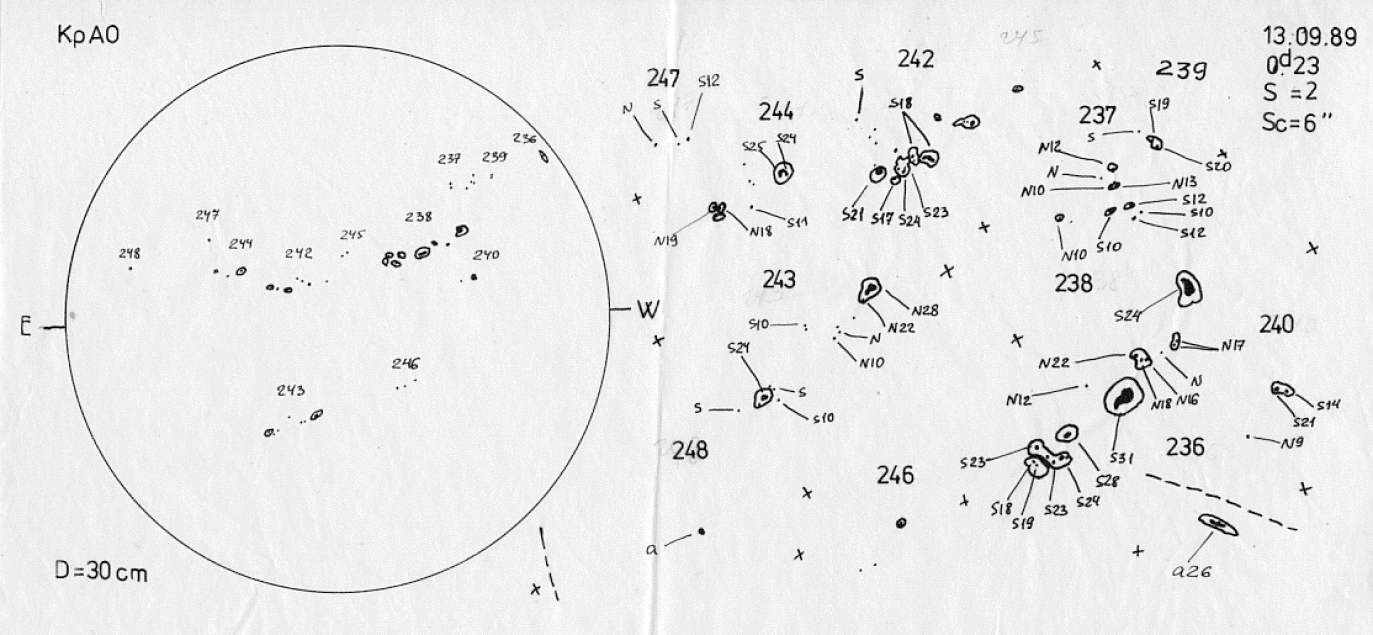 КрАО
236
237
239
247
238
248
244
242
245
240
E
W
246
243
D=30cm
245
13.09.89
0.d23
S =2
Sc=6"
242
239
247
S12
S
N
S
S18
S19
237
244
S
S24
S25
N12
S20
N
N10
N13
S12
S21
S17
S24
S23
S10
S11
N19
N18
S12
N10
S10
243
238
N28
S24
S10
N22
N
240
N10
N17
S24
N22
N
S
N12
N18
N16
S14
S
S10
S21
N9
248
S23
S31
236
246
S28
S18
S19
S23
S24
a
a26